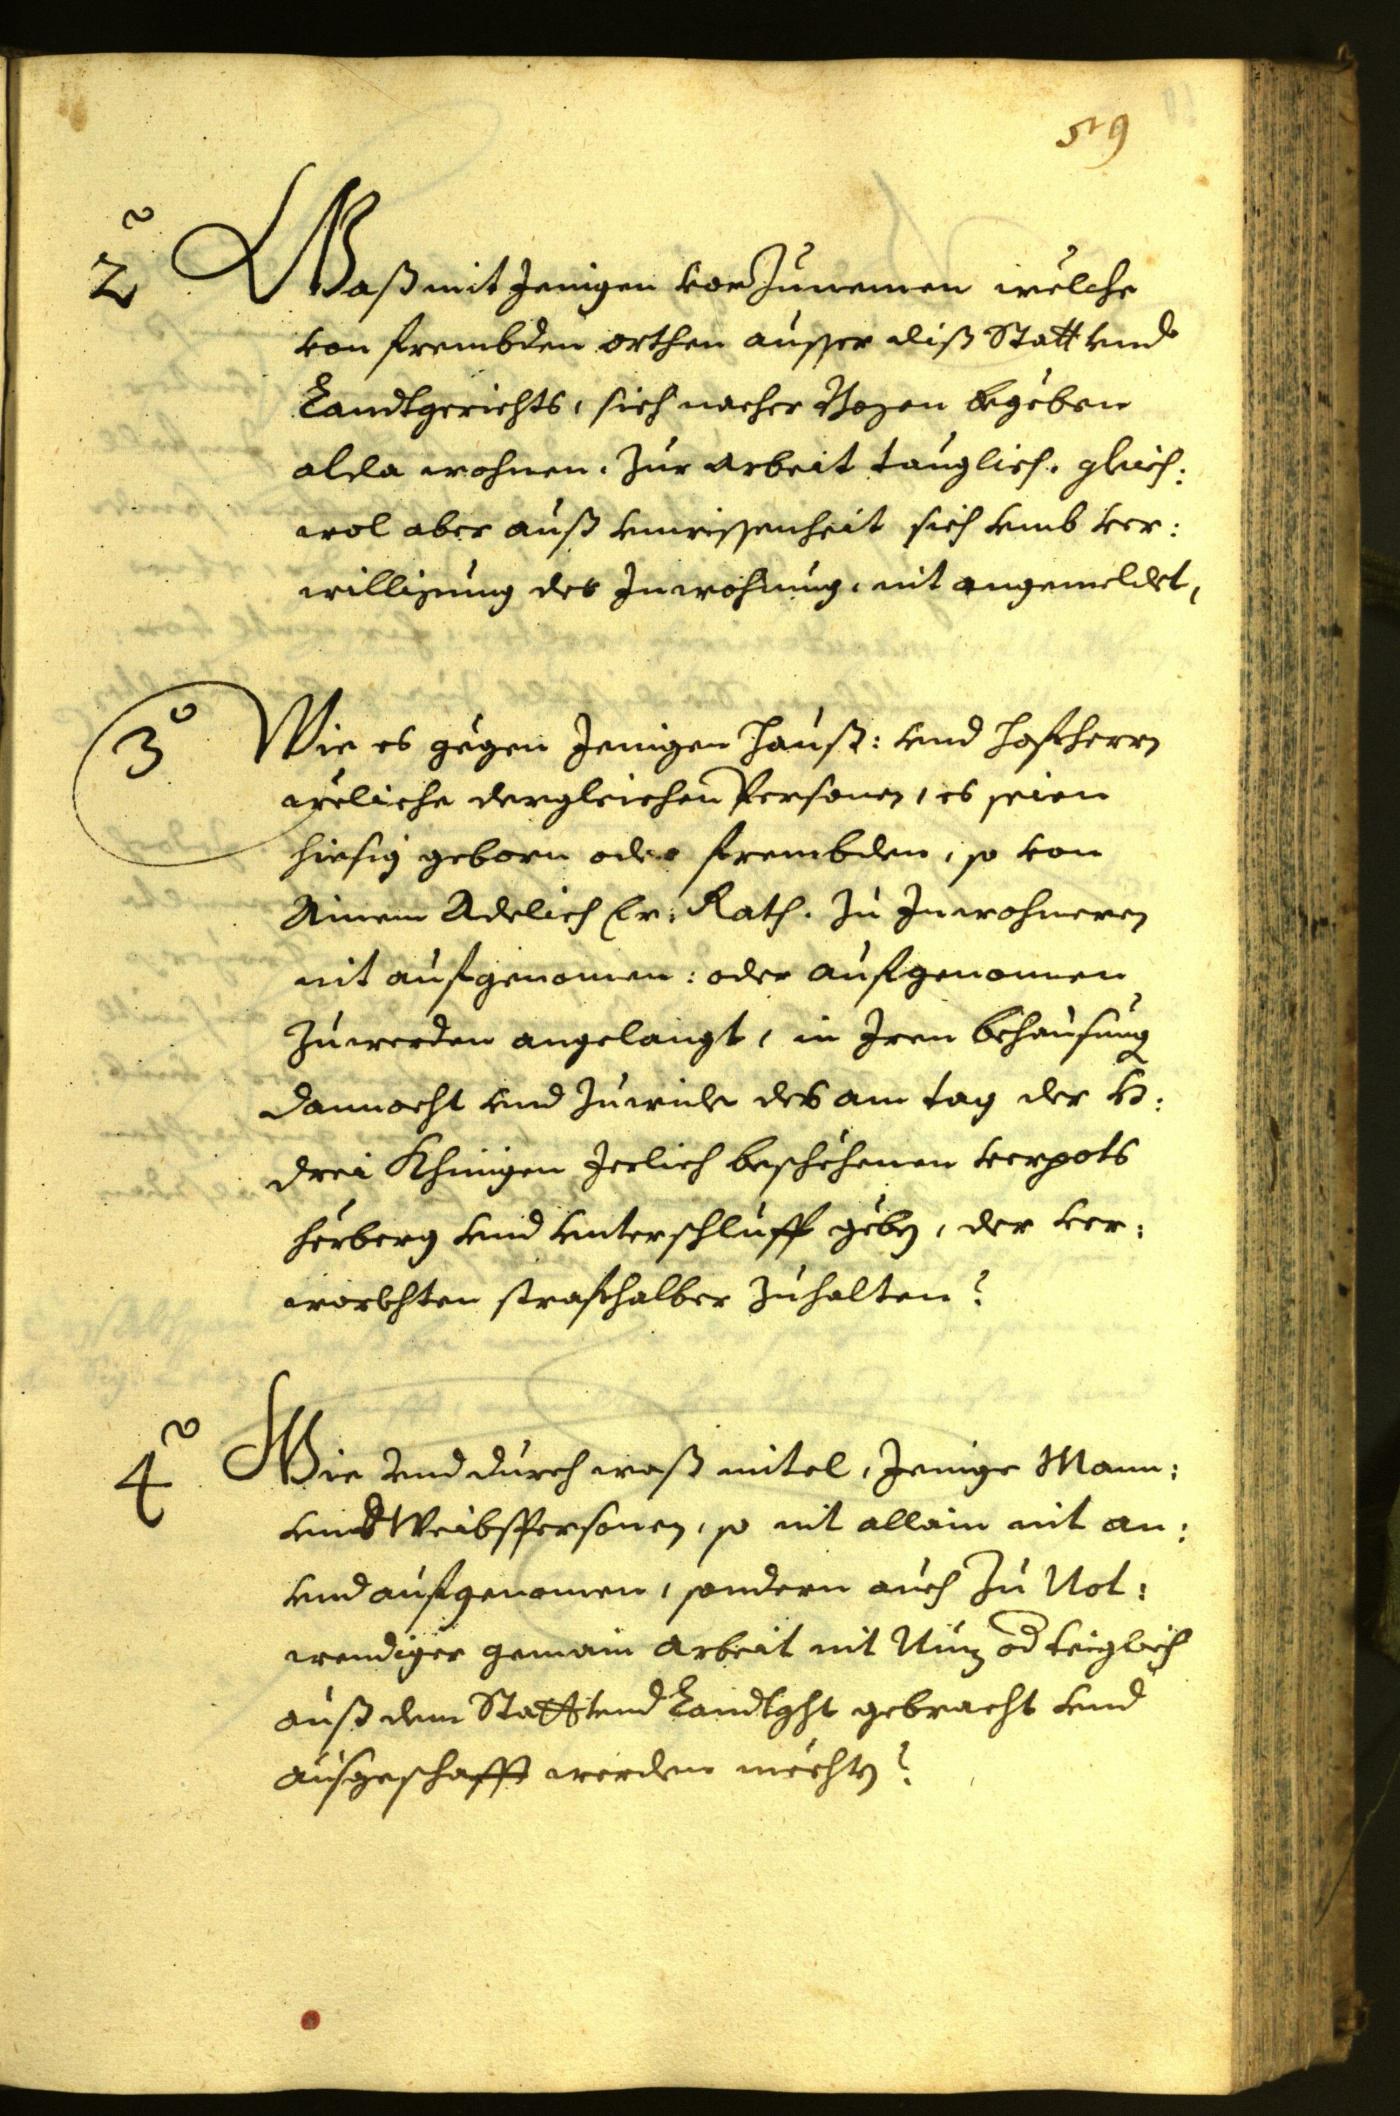 59
2o Waß mit Jenigen vorzunemen welche
von frembden orthen ausser diß Statt vnd
Landtgerichts, sich nacher Bozen begeben
alda wohnen, zur arbeit tauglich, gleich:
wol aber auß vnwissenheit sich vmb ver:
willigung der Inwohnung, nit angemeldet,
3o Wie es gegen Jenigen Hauß: vnd hofherrn
weliche dergleichen Personen, es seien
hiesig geborn oder frembden, so von
Ainem Adelich Er: Rath, zu Inwohnern
nit aufgenomen: oder aufgenomen
zuwerden angelangt, in Iren behausung
dannocht vnd zuwider des am tag der H:
drei Khinigen Jerlich beschehenen verpots
herberg vnd vnterschluff geben, der ver:
worchten strafhalber zuhalten?
4o Wie vnd durch waß mitel, Jenige Mann:
vnd Weibspersonen, so nit allain nit an:
vnd aufgenomen, sondern auch zu Not:
wendiger gemain arbeit nit Nuz od teiglich
auß dem Statt vnd Landtght gebracht vnd
ausgeschafft werden mechten?